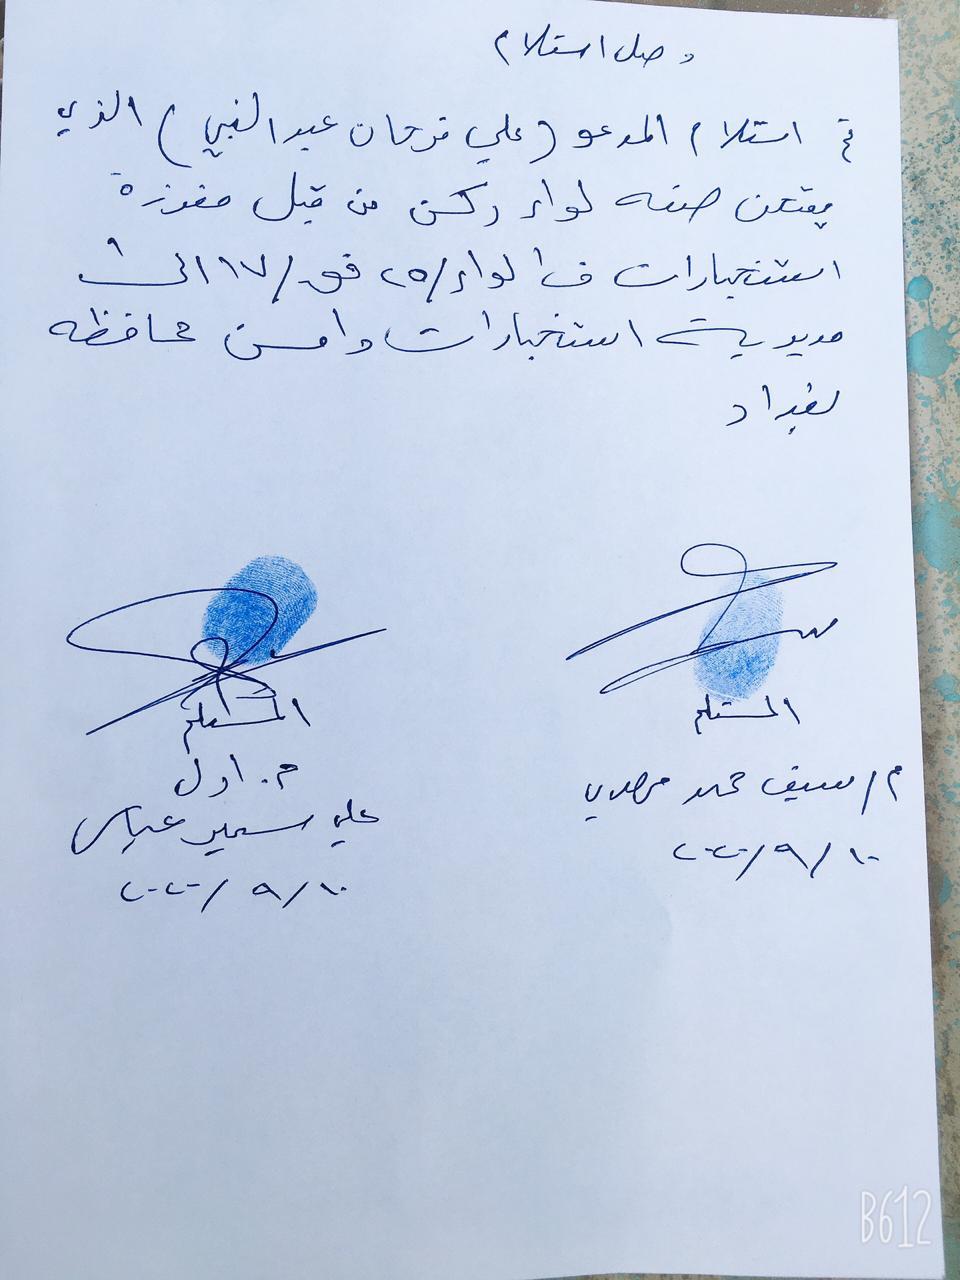 وصل استلام
تم استلام المدعو (علي فرحان عبد النبي) الذي
يمتهن صفه لواء ركن من قبل مفرزة
استخبارات ف١ لواء/٢٥ فق/١٧ الى
مديرية استخبارات وامن محافظه
بغداد
المستلم
المستلم
م/ سيف محمد مهدي
م. اول
علي سمير عباس
٢٠٢٠/٩/١٠
٢٠٢٠/٩/١٠
B612